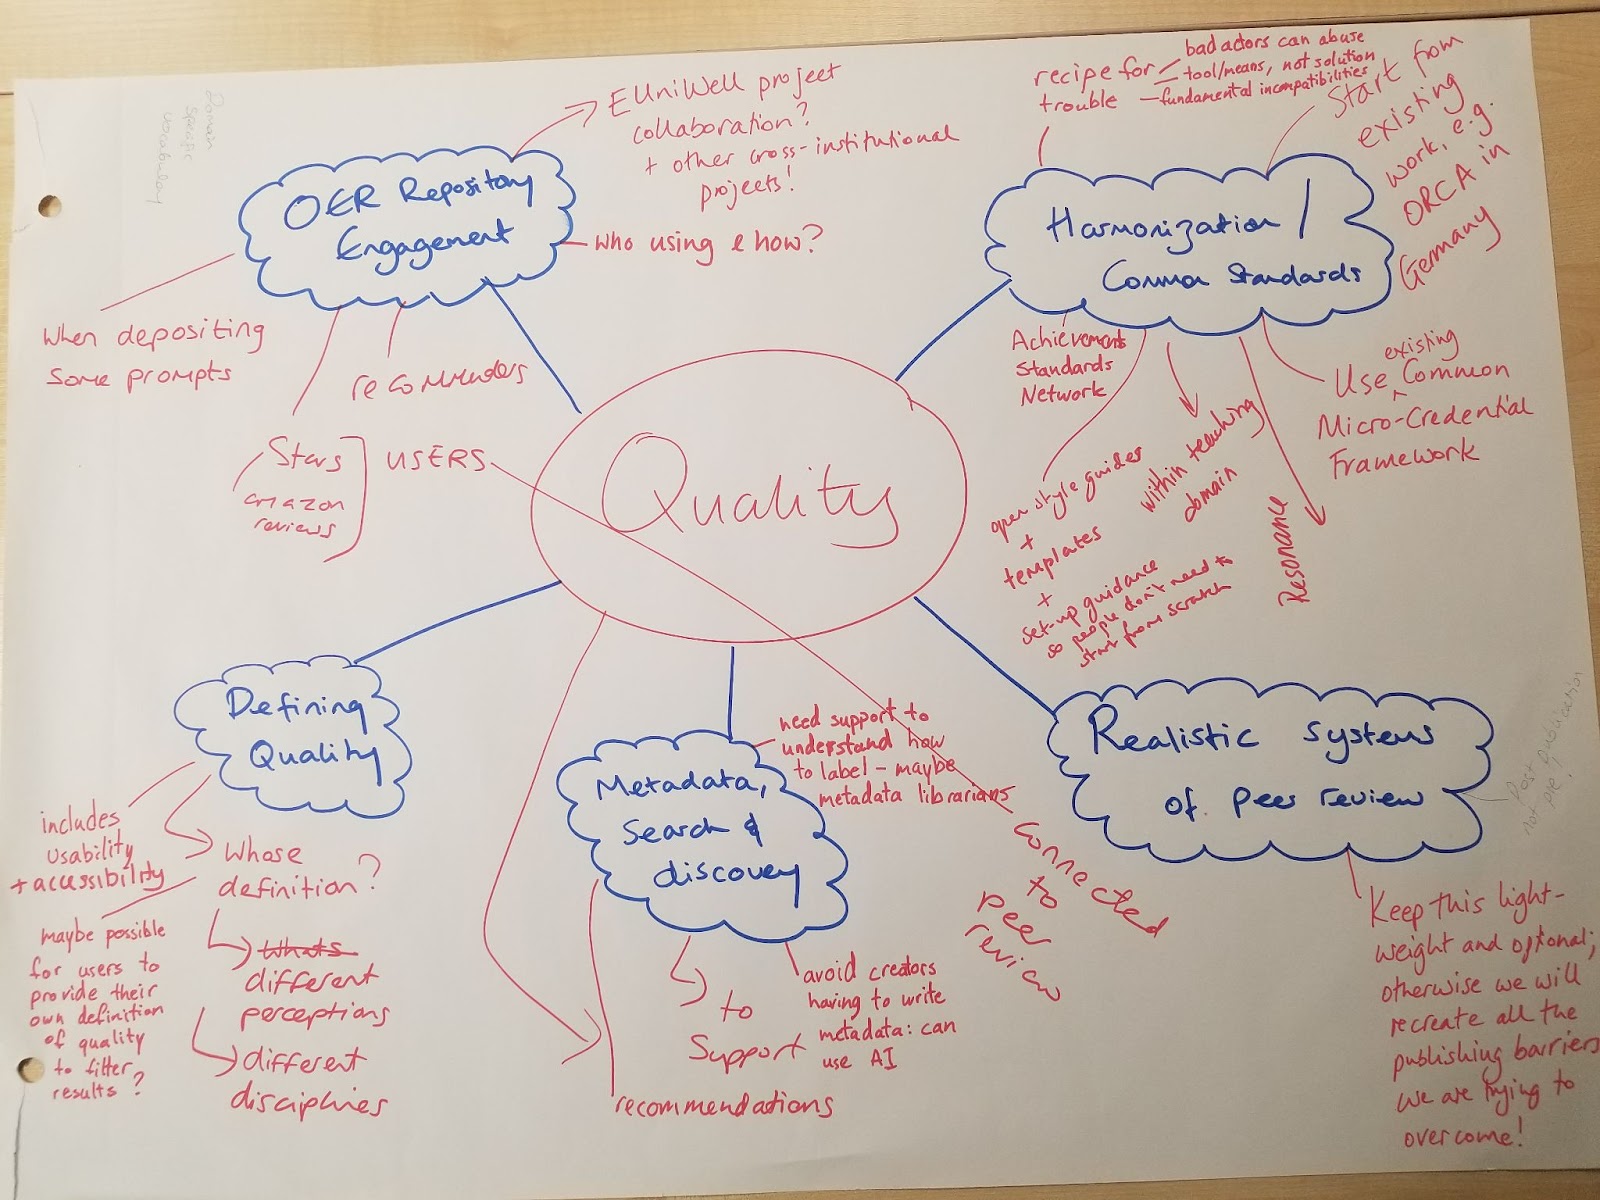 Quality
OER Repository
Engagement
EUniWell project
collaboration?
+ other cross-institutional
projects!
Who using & how?
When depositing
some prompts
recommenders
Stars
amazon
reviews
USERS
connected
to
peer
review
Domain
specific
vocabulary
Harmonization /
Common Standards
recipe for
trouble
bad actors can abuse
tool/means, not solution
fundamental incompatibilities
Start from
existing
work, e.g.
ORCA in
Germany
Achievement
Standards
Network
open style guides
+
templates
+
set-up guidance
so people don't need to
start from scratch
within teaching
domain
Resonance
existing
Use Common
Micro-Credential
Framework
Defining
Quality
includes
usability
+ accessibility
Whose
definition?
maybe possible
for users to
provide their
own definition
of quality
to filter
results?
Whats
different
perceptions
different
disciplines
Metadata,
Search &
discovery
need support to
understand how
to label - maybe
metadata librarians
to
support
avoid creators
having to write
metadata: can
use AI
recommendations
Realistic systems
of peer review
Post publication
not pre!
Keep this light-
weight and optional;
otherwise we will
recreate all the
publishing barriers
we are trying to
overcome!